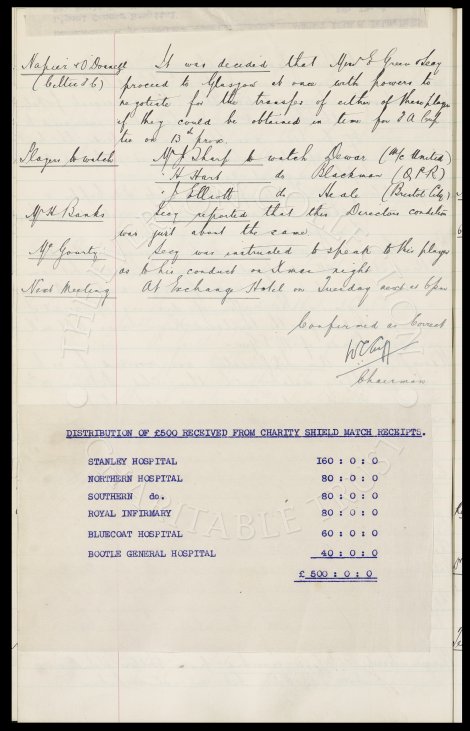 Napier & O Donnell It was decided that Messrs Green & Secy
(Celtic F C) proceed to Glasgow at once with powers to
negotiate for the transfer of either of these players
if they could be obtained in time for F A Cup
tie on 13th prox.
Players to watch Mr J Sharp to watch Dewar (M/c United)
" H Hart do Blackman (Q.P.R)
" J Elliott do Heale (Bristol City)
Mr H Banks Secy reported that this Directors condition
was just about the same
Mc Gourty Secy was instructed to speak to this player
as to his conduct on Xmas night
Next Meeting At Exchange Hotel on Tuesday next at 6pm
Confirmed as Correct
W C Cuff
Chairman
DISTRIBUTION OF £500 RECEIVED FROM CHARITY SHIELD MATCH RECEIPTS.
STANLEY HOSPITAL 160 : 0 : 0
NORTHERN HOSPITAL 80 : 0 : 0
SOUTHERN do. 80 : 0 : 0
ROYAL INFIRMARY 80 : 0 : 0
BLUECOAT HOSPITAL 60 : 0 : 0
BOOTLE GENERAL HOSPITAL 40 : 0 : 0
£ 500 : 0 : 0